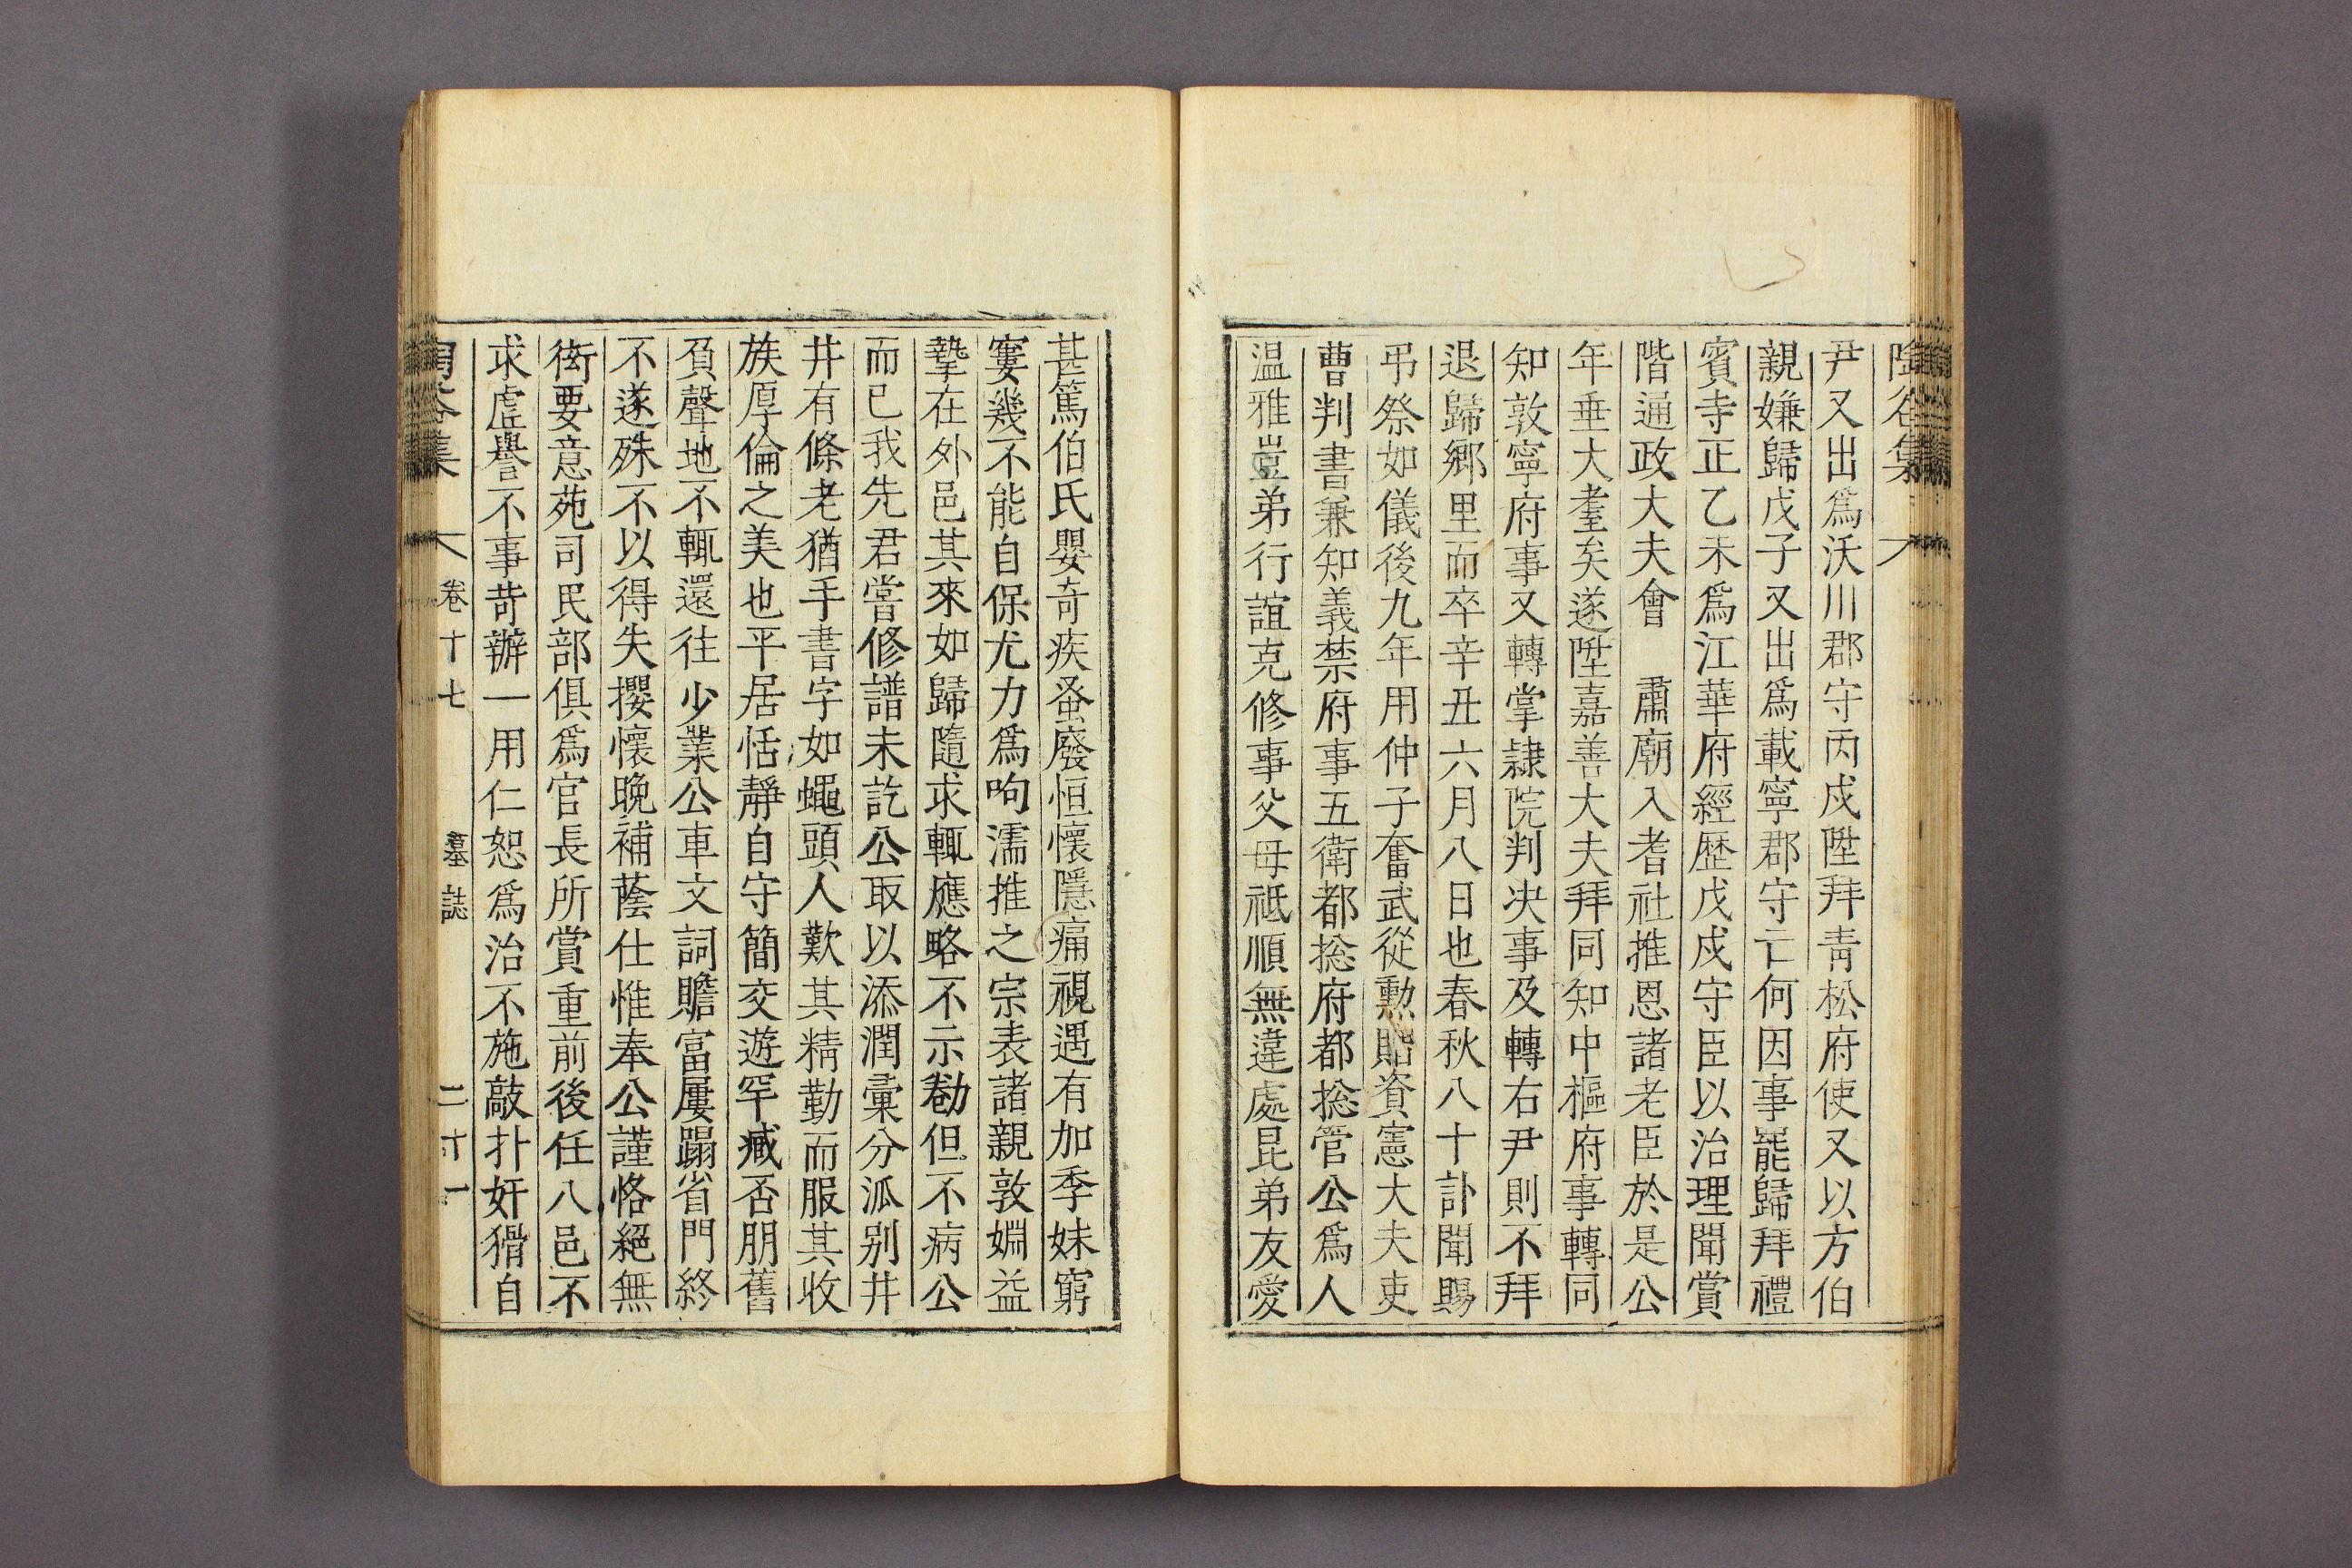 陶谷集
尹又出爲沃川郡守丙戍陞拜靑松府使又以方伯
親嫌歸戊子又出爲載寧郡守亡何因事罷歸拜禮
賓寺正乙未爲江華府經歷戊戍守臣以治理聞賞
階通政大夫會　肅廟入耆社推恩諸老臣於是公
年垂大耋矣遂陞嘉善大夫拜同知中樞府事轉同
知敦寧府事又轉掌隷院判决事及轉右尹則不拜
退歸鄕里而卒辛丑六月八日也春秋八十訃聞賜
弔祭如儀後九年用仲子奮武從勲貤資憲大夫吏
曹判書兼知義禁府事五衛都捴府都捴管公爲人
温雅豈弟行誼克修事父母祗順無違處昆弟友愛
甚篤伯氏嬰奇疾蚤廢恒懷隱痛視遇有加季妹窮
窶幾不能自保尤力爲呴濡推之宗表諸親敦婣益
摯在外邑其來如歸隨求輒應略不示勌但不病公
而已我先君嘗修譜未訖公取以添潤彙分派别井
井有條老猶手書字如蠅頭人歎其精勤而服其收
族厚倫之美也平居恬靜自守簡交遊罕臧否朋舊
負聲地不輒還往少業公車文詞贍富屢蹋省門終
不遂殊不以得失攖懷晩補蔭仕惟奉公謹恪絕無
衒要意苑司民部俱爲官長所賞重前後任八邑不
求虛譽不事苛辦一用仁恕爲治不施敲扑奸猾自
陶谷集　卷十七　墓誌　二十一